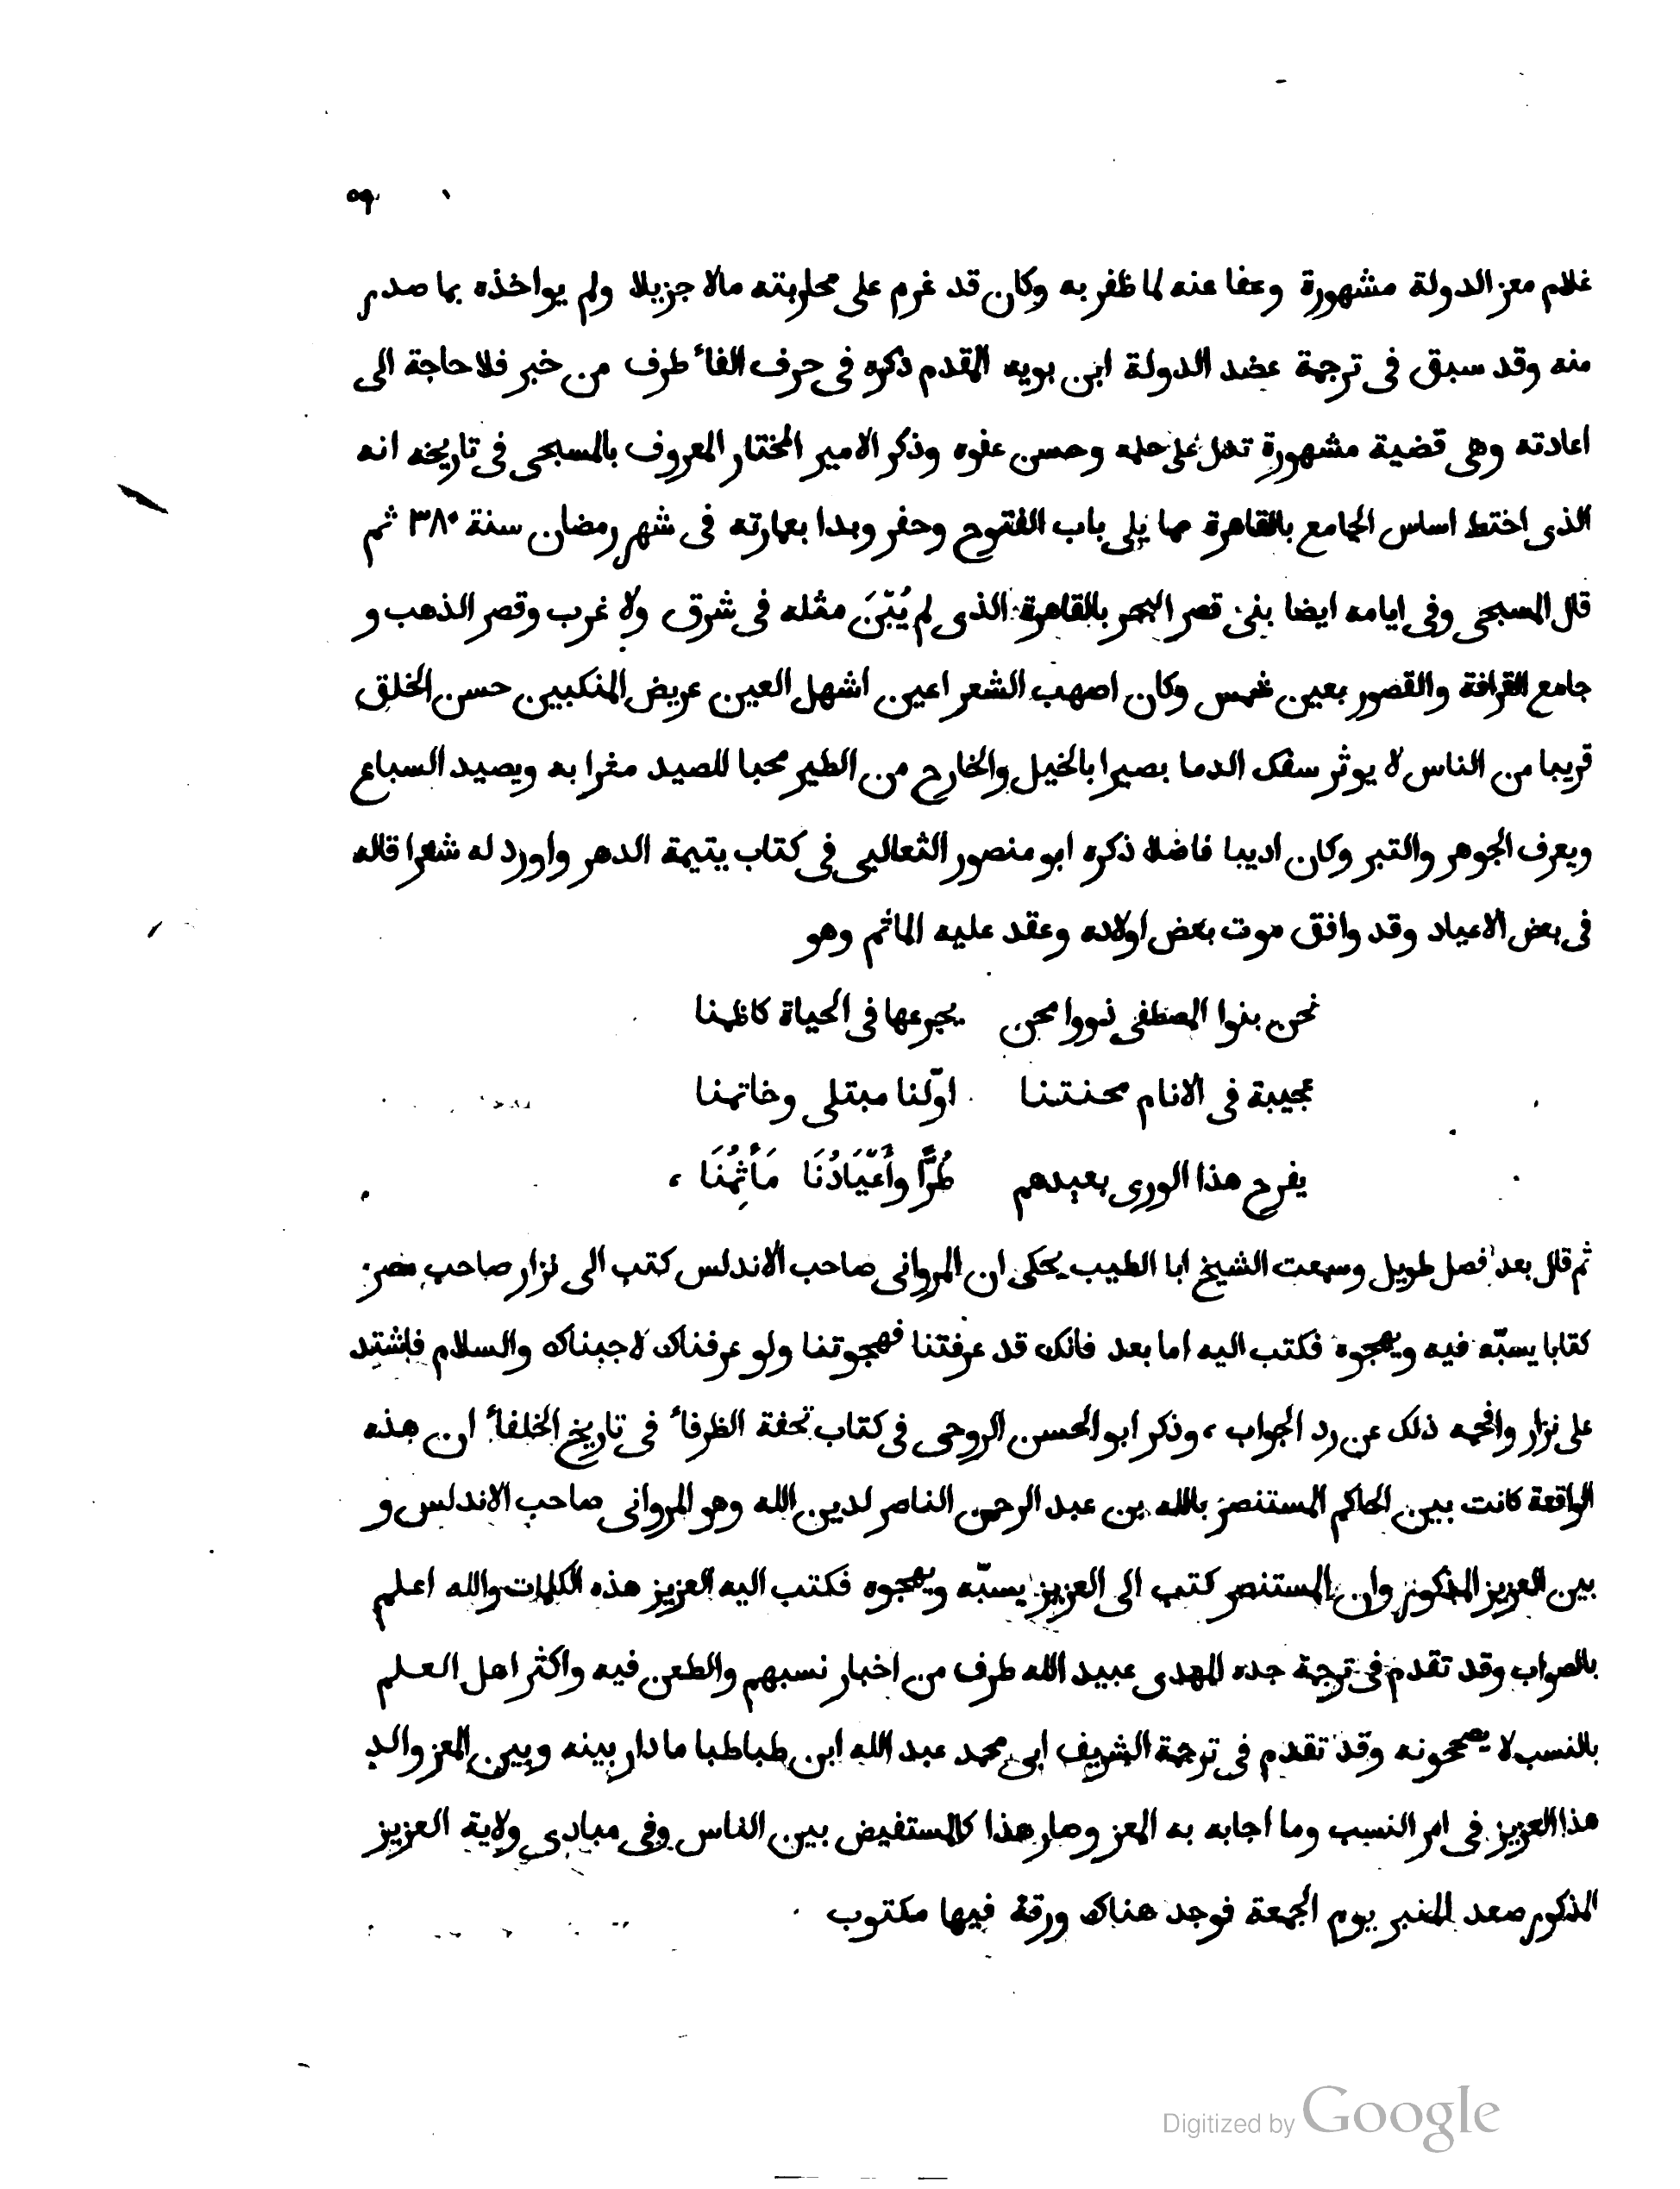 ٥٩
غلام معز الدولة مشهورة وعفا عنه لما ظفر به وكان قد غرم على محاربته مالا جزيلا ولم يواخذه بما صدر
منه وقد سبق فى ترجمة عضد الدولة ابن بويه المقدم ذكره فى حرف الفاء طرف من خبر فلا حاجة الى
اعادته وهى قضية مشهورة تدل على حلمه وحسن عفوه وذكر الامير المختار المعروف بالمسبحى فى تاريخه انه
الذى اختط اساس الجامع بالقاهرة مما يلى باب الفتوح وحفر وبدا بعمارته فى شهر رمضان سنة ٣٨٠ ثم
قال المسبحى وفى ايامه ايضا بنى قصر البحر بالقاهرة الذى لم يُبْنَ مثله فى شرق ولا غرب وقصر الذهب و
جامع القرافة والقصور بعين شمس وكان اصهب الشعر اعين اشهل العين عريض المنكبين حسن الخلق
قريبا من الناس لا يوثر سفك الدما بصيرا بالخيل والخارح من الطير محبا للصيد مغرا به ويصيد السباع
ويعرف الجوهر والتبر وكان اديبا فاضلا ذكره ابو منصور الثعالبى فى كتاب يتيمة الدهر واورد له شعرا قاله
فى بعض الاعياد وقد وافق موت بعض اولاده وعقد عليه الماثم وهو
نحن بنوا المصطفى ذووا محن يجرعها فى الحياة كاظمنا
عجيبة فى الانام محنتنا اوّلنا مبتلى وخاتمنا
يفرح هذا الورى بعيدهم طُرًّا وأَعْيَادُنَا مَأْثِمُنَا ،
ثم قال بعد فصل طويل وسمعت الشيخ ابا الطيب يحكى ان المروانى صاحب الاندلس كتب الى نزار صاحب مصر
كتابا يسبّه فيه ويهجوه فكتب اليه اما بعد فانك قد عرفتنا فهجوتنا ولو عرفناك لاجبناك والسلام فاشتد
على نزار وافحمه ذلك عن رد الجواب ، وذكر ابو الحسن الروحى فى كتاب تحفة الظرفاء فى تاريخ الخلفاء ان هذه
الواقعة كانت بين الحاكم المستنصر بالله بن عبد الرحمن الناصر لدين الله وهو المروانى صاحب الاندلس و
بين العزيز المذكور وان المستنصر كتب الى العزيز يسبّه ويهجوه فكتب اليه العزيز هذه الكلمات والله اعلم
بالصواب وقد تقدم فى ترجمة جده المهدى عبيد الله طرف من اخبار نسبهم والطعن فيه واكثر اهل العلم
بالنسب لا يصححونه وقد تقدم فى ترجمة الشريف ابى محمد عبد الله ابن طباطبا ما دار بينه وبين المعز والد
هذا العزيز فى امر النسب وما اجابه به المعز وصار هذا كالمستفيض بين الناس وفى مبادى ولاية العزيز
المذكور صعد المنبر يوم الجمعة فوجد هناك ورقة فيها مكتوب
Digitized by Google